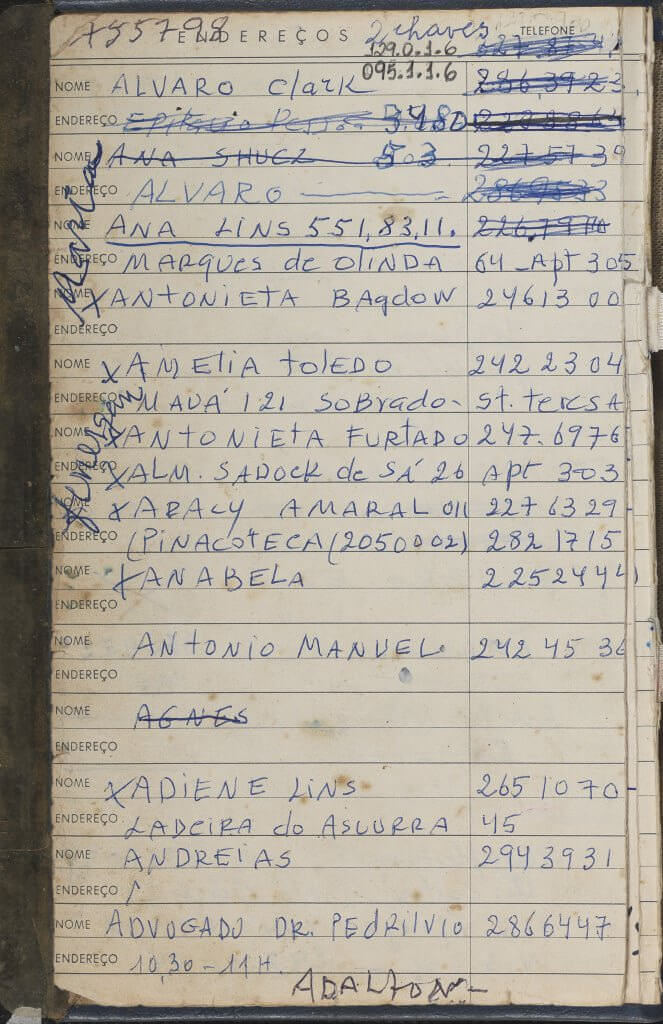 755798 ENDEREÇOS 2 chaves TELEFONE
129.0.1.6
095.1.1.6
NOME ALVARO Clark 286,392 3
ENDEREÇO Epitacio Pessoa 3480
NOME ANA SHUCZ 503 227 57 39
ENDEREÇO ALVARO
NOME ANA LINS 551,83,11.
ENDEREÇO MARQUES de OLINDA 64 - Apt 305
NOME X ANTONIETA BAgdOW 24613 00
ENDEREÇO
NOME X AMELIA TOLEDO 242 2304
ENDEREÇO MAUÁ 121 SOBrado - St. TERESA
NOME X ANTONIETA FURTADO 247.6976
ENDEREÇO X ALM. SADOCK de SÁ 26 Apt 303
NOME X ARACY AMARAL 011 227 6329 -
ENDEREÇO (PINACOTECA (2050002) 282 1715
NOME X ANABELA 2252444
ENDEREÇO
NOME ANTONIO MANUEL 242 45 36
ENDEREÇO
NOME AGNES
ENDEREÇO
NOME X ADIENE LINS 265 1070 -
ENDEREÇO LADEIRA do ASCURRA 45
NOME ANDREIAS 294 3931
ENDEREÇO
NOME ADVOGADO DR. PEDRILVIO 2866447
ENDEREÇO 10,30 - 11 H.
ADALTON -